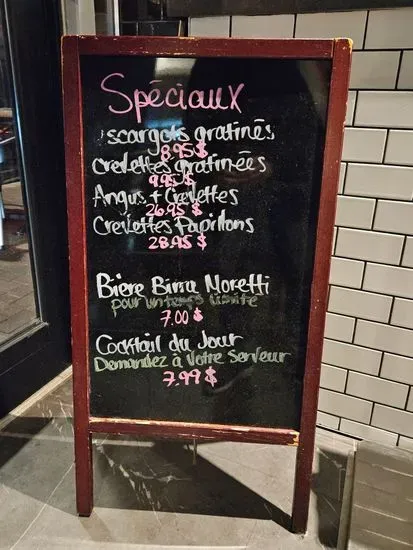 Spéciaux
scargots gratinés
8.95 $
crevettes gratinées
9.95 $
Angus + Crevettes
26.95 $
Crevettes Papillons
28.95 $
Bière Birra Moretti
pour un temps limité
7.00 $
Cocktail du Jour
Demandez à Votre Serveur
7.99 $